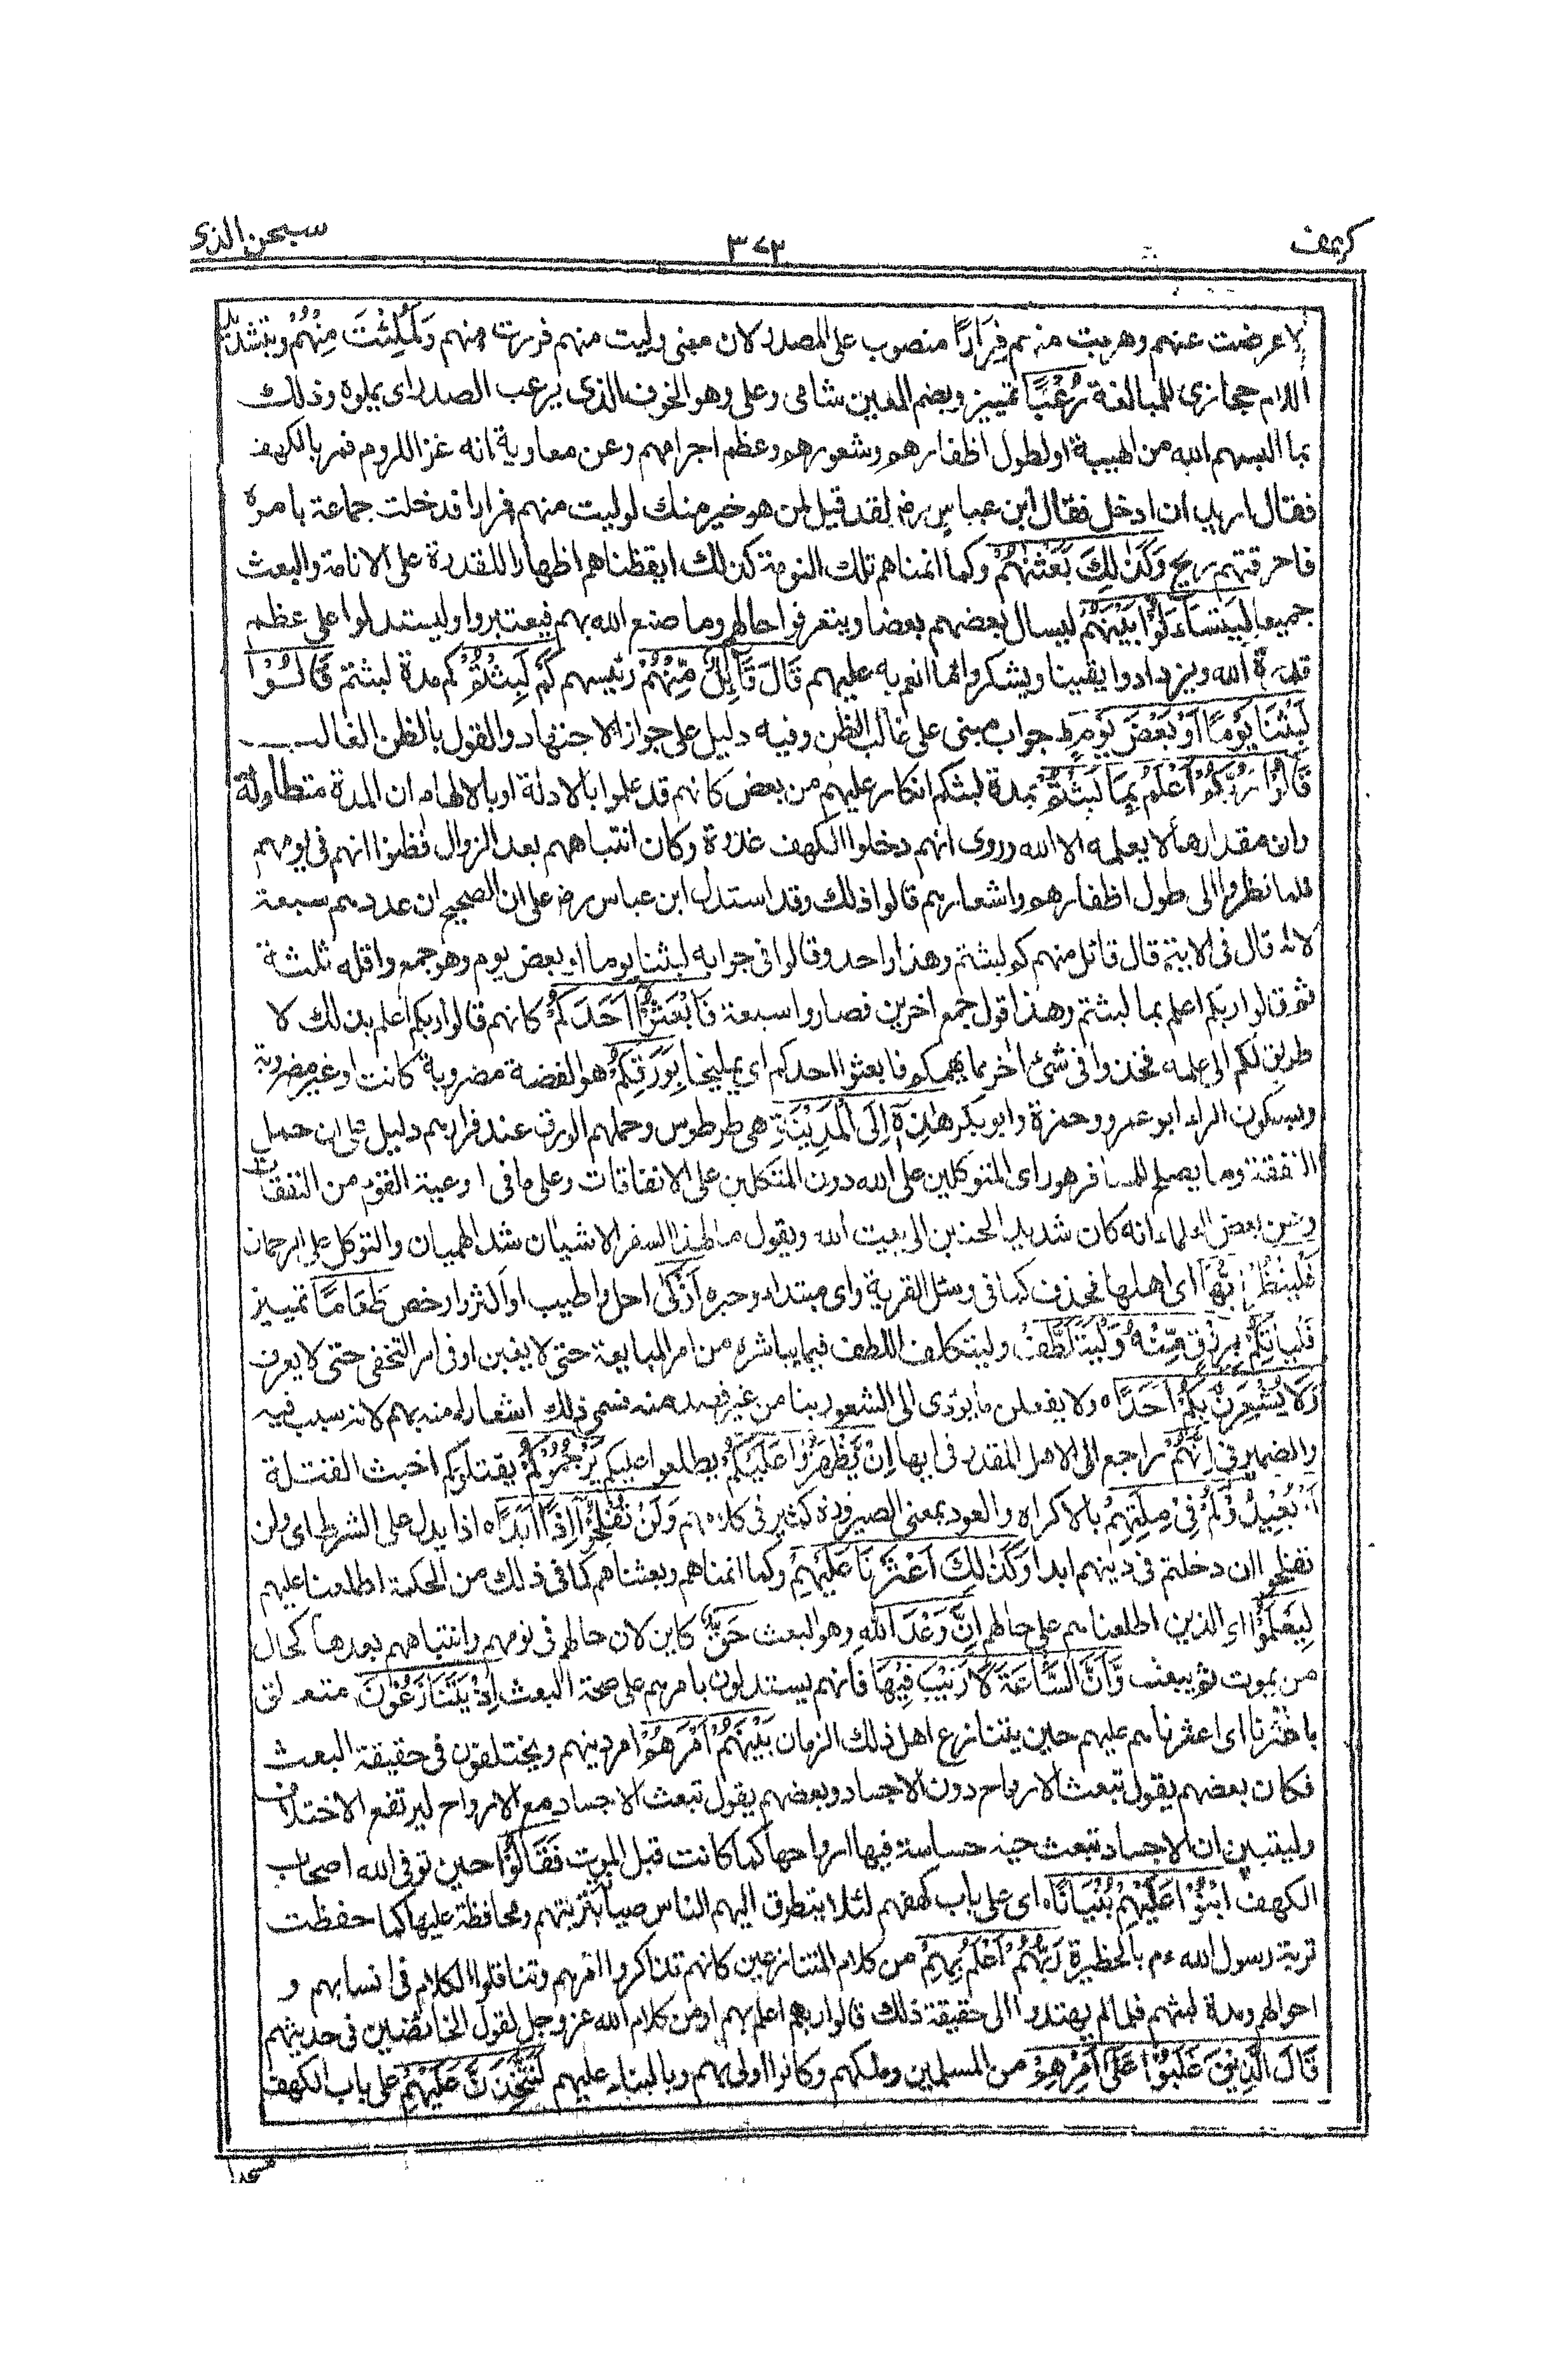 كهف ٣٧٣ سبحن الذى
لاعرضت عنهم وهربت منهم فِرَارًا منصوب على المصدر لان معنى وليت منهم فررت منهم وَلَمُلِئْتَ مِنْهُمْ وبتشديد
اللام حجازى للمبالغة رُعْبًا تمييز وبضم العين شامى وعلى وهو الخوف الذى يرعب الصدر اى يملوه وذلك
بما البسهم الله من الهيبة او لطول اظفارهم وشعورهم وعظم اجرامهم وعن معاوية انه غزا الروم فمر بالكهف
فقال اريد ان ادخل فقال ابن عباس رض لقد قيل لمن هو خير منك لوليت منهم فرارا فدخلت جماعة بامره
فاحرقتهم ريح وَكَذٰلِكَ بَعَثْنٰهُمْ وكما انمناهم تلك النومة كذلك ايقظناهم اظهارا للقدرة على الانامة والبعث
جميعا لِيَتَسَآءَلُوْا بَيْنَهُمْ ليسال بعضهم بعضا ويتعرفوا حالهم وما صنع الله بهم فيعتبروا وليستدلوا على عظم
قدرة الله ويزدادوا يقينا ويشكروا ما انعم به عليهم قَالَ قَآئِلٌ مِّنْهُمْ رئيسهم كَمْ لَبِثْتُمْ كم مدة لبثتم قَالُوْا
لَبِثْنَا يَوْمًا اَوْ بَعْضَ يَوْمٍ ط جواب مبنى على غالب الظن وفيه دليل على جواز الاجتهاد والقول بالظن الغالب
قَالُوْا رَبُّكُمْ اَعْلَمُ بِمَا لَبِثْتُمْ بمدة لبثكم انكار عليهم من بعض كانهم قد علموا بالادلة او بالالهام ان المدة متطاولة
وان مقدارها لا يعلمه الا الله وروى انهم دخلوا الكهف غدوة وكان انتباههم بعد الزوال فظنوا انهم فى يومهم
فلما نظروا الى طول اظفارهم واشعارهم قالوا ذلك وقد استدل ابن عباس رض على ان الصحيح ان عددهم سبعة
لانه قال فى الاية قال قائل منهم كم لبثتم وهذا واحد وقالوا فى جوابه لبثنا يوما او بعض يوم وهو جمع واقله ثلثة
ثم قالوا ربكم اعلم بما لبثتم وهذا قول جمع اخرين فصاروا سبعة فَابْعَثُوْٓا اَحَدَكُمْ كانهم قالوا ربكم اعلم بذلك لا
طريق لكم الى علمه فخذوا فى شئ اخر مما يهمكم فابعثوا احدكم اى يمليخا بِوَرِقِكُمْ هو الفضة مضروبة كانت او غير مضروبة
وبسكون الراء ابو عمرو وحمزة وابو بكر هٰذِهٖٓ اِلَى الْمَدِيْنَةِ هى طرطوس وحملهم الورق عند فرارهم دليل على ان حمل
النفقة وما يصلح للمسافر هو راى المتوكلين على الله دون المتكلين على الاتفاقات وعلى ما فى اوعية القوم من النفقات
وعن بعض العلماء انه كان شديد الحنين الى بيت الله ويقول ما لهذا السفر الا شيئان شد الهميان والتوكل على الرحمان
فَلْيَنْظُرْ اَيُّهَآ اى اهلها فحذف كما فى وسئل القرية واى مبتداء وخبره اَزْكٰى احل واطيب او اكثر وارخص طَعَامًا تمييز
فَلْيَاْتِكُمْ بِرِزْقٍ مِّنْهُ وَلْيَتَلَطَّفْ وليتكلف اللطف فيما يباشره من امر المبايعة حتى لا يغبن او فى امر التخفى حتى لا يعرف
وَلَا يُشْعِرَنَّ بِكُمْ اَحَدًا ٥ ولا يفعلن ما يؤدى الى الشعور بنا من غير قصد منه فسمى ذلك اشعارا منه بهم لانه سبب فيه
والضمير فى اِنَّهُمْ راجع الى الاهل المقدر فى ايها اِنْ يَّظْهَرُوْا عَلَيْكُمْ يطلعوا عليكم يَرْجُمُوْكُمْ يقتلوكم اخبث القتلة
اَوْ يُعِيْدُوْكُمْ فِىْ مِلَّتِهِمْ بالاكراه والعود بمعنى الصيرورة كثير فى كلامهم وَلَنْ تُفْلِحُوْٓا اِذًا اَبَدًا ٥ اذا يدل على الشرط اى ولن
تفلحوا ان دخلتم فى دينهم ابدا وَكَذٰلِكَ اَعْثَرْنَا عَلَيْهِمْ وكما انمناهم وبعثناهم كما فى ذلك من الحكمة اطلعنا عليهم
لِيَعْلَمُوْٓا اى الذين اطلعناهم على حالهم اِنَّ وَعْدَ اللهِ وهو البعث حَقٌّ كاين لان حالهم فى نومهم وانتباههم بعدها كحال
من يموت ثم يبعث وَّاَنَّ السَّاعَةَ لَا رَيْبَ فِيْهَا فانهم يستدلون بامرهم على صحة البعث اِذْ يَتَنَازَعُوْنَ متعلق
باعثرنا اى اعثرناهم عليهم حين يتنازع اهل ذلك الزمان بَيْنَهُمْ اَمْرَهُمْ امر دينهم ويختلفون فى حقيقة البعث
فكان بعضهم يقول تبعث الارواح دون الاجساد وبعضهم يقول تبعث الاجساد مع الارواح ليرتفع الاختلاف
وليتبين ان الاجساد تبعث حية حساسة فيها ارواحها كما كانت قبل الموت فَقَالُوْا حين توفى الله اصحاب
الكهف ابْنُوْا عَلَيْهِمْ بُنْيَانًا ٥ اى على باب كهفهم لئلا يتطرق اليهم الناس ضيا بتربتهم ومحافظة عليها كما حفظت
تربة رسول الله ءم بالحظيرة رَبُّهُمْ اَعْلَمُ بِهِمْ من كلام المتنازعين كانهم تذاكروا امرهم وتناقلوا الكلام فى انسابهم و
احوالهم ومدة لبثهم فلما لم يهتدوا الى حقيقة ذلك قالوا ربهم اعلم بهم او من كلام الله عز وجل لقول الخائضين فى حديثهم
قَالَ الَّذِيْنَ غَلَبُوْا عَلٰٓى اَمْرِهِمْ من المسلمين وملكهم وكانوا اولى بهم وبالبناء عليهم لَنَتَّخِذَنَّ عَلَيْهِمْ على باب الكهف
مسجدا